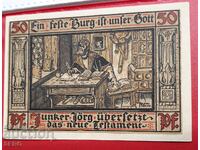 Ein feste Burg ist unser Gott
50 50
Junker Jörg übersetzt
Pf. das neue Testament Pf.